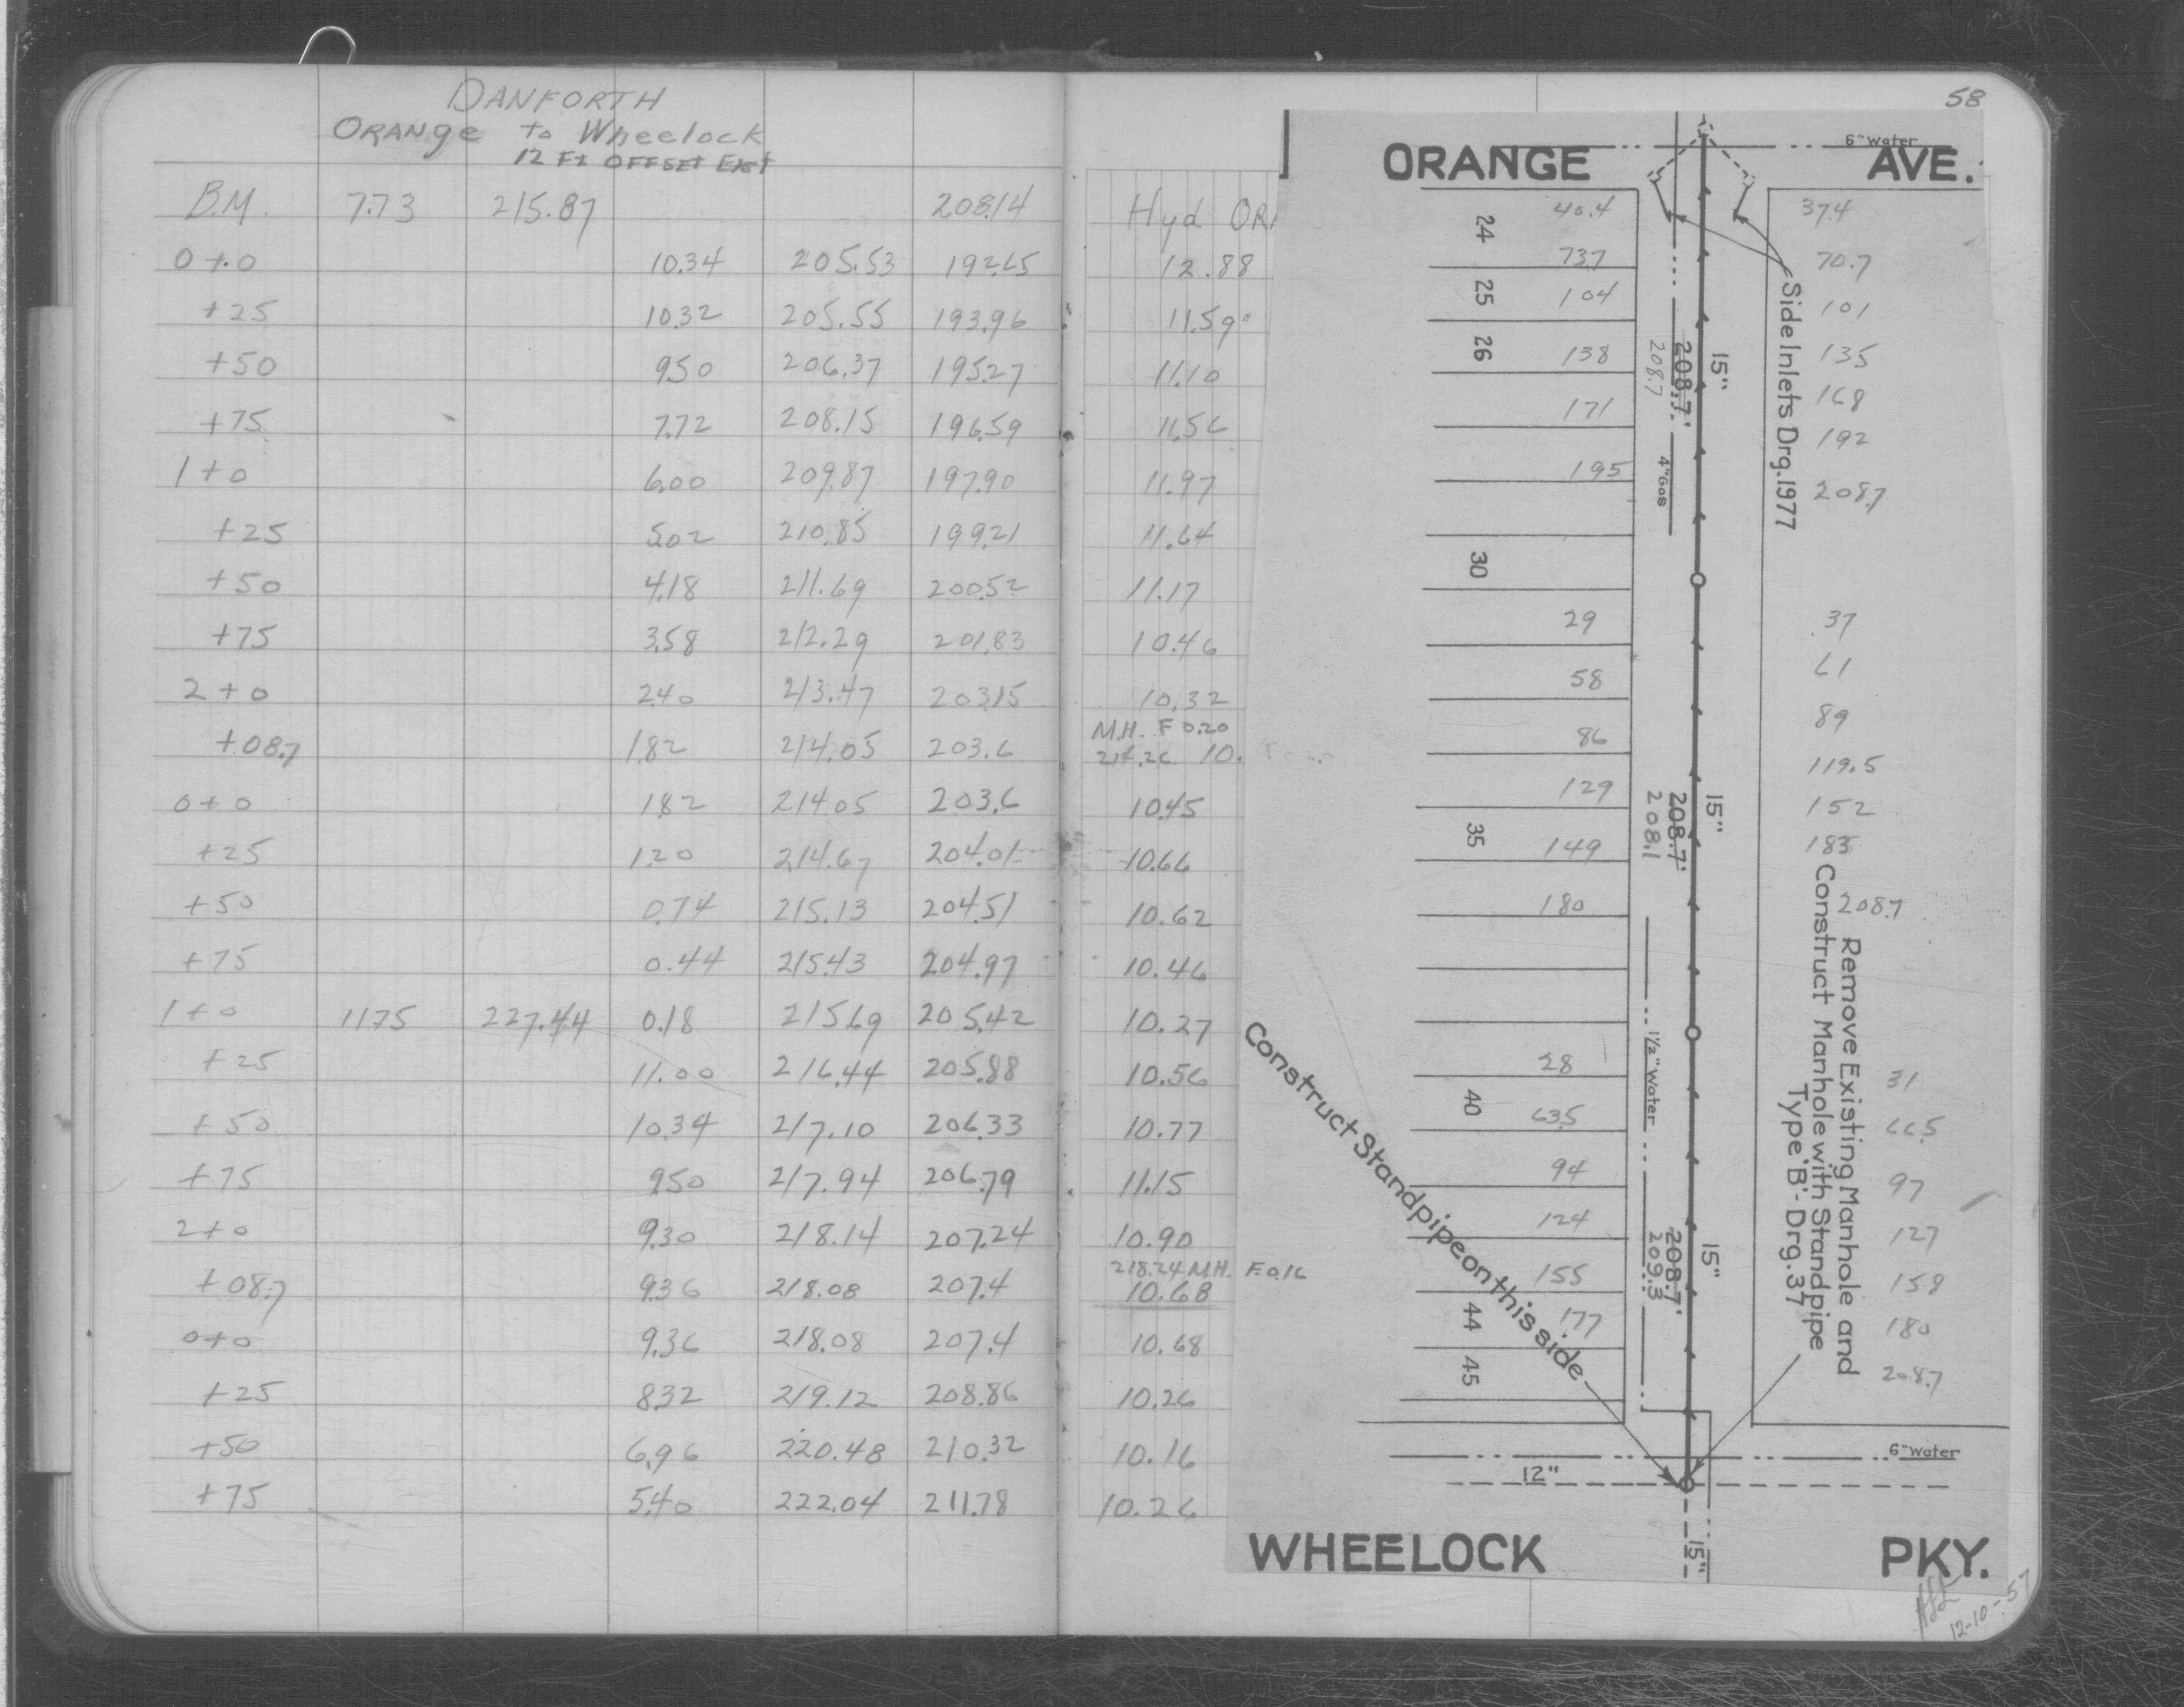 DANFORTH
ORANGE to Wheelock
12 Ft OFFSET EAST
B.M. 7.73 215.87 208.14 Hyd ORA
0+0 10.34 205.53 192.65 12.88
+25 10.32 205.55 193.96 11.59"
+50 9.50 206.37 195.27 11.10
+75 7.72 208.15 196.59 11.56
1+0 6.00 209.87 197.90 11.97
+25 5.02 210.85 199.21 11.64
+50 4.18 211.69 200.52 11.17
+75 3.58 212.29 201.83 10.46
2+0 2.40 213.47 203.15 10.32
M.H. F 0.20
+08.7 1.82 214.05 203.6 214.26 10.
0+0 1.82 214.05 203.6 10.45
+25 1.20 214.67 204.01 10.66
+50 0.74 215.13 204.51 10.62
+75 0.44 215.43 204.97 10.46
1+0 11.75 227.44 0.18 215.69 205.42 10.27
+25 11.00 216.44 205.88 10.56
+50 10.34 217.10 206.33 10.77
+75 9.50 217.94 206.79 11.15
2+0 9.30 218.14 207.24 10.90
218.24 M.H. F.0.16
+08.7 9.36 218.08 207.4 10.68
0+0 9.36 218.08 207.4 10.68
+25 8.32 219.12 208.86 10.26
+50 6.96 220.48 210.32 10.16
+75 5.40 222.04 211.78 10.26
58
6" Water
ORANGE AVE.
24 40.4 37.4
73.7 70.7
25 104 101
26 138 135
171 168
195 192
208.7
Side Inlets Drg. 1977
15"
208.7'
208.7
4" Gas
30
29 37
58 61
86 89
129 119.5
152
35 149 185
180 208.7
15"
208.7'
208.1
Remove Existing Manhole and
Construct Manhole with Standpipe
Type 'B' - Drg. 37
1 1/2" Water
28 31
40 63.5 66.5
94 97
124 127
155 158
44 177 180
45 208.7
15"
208.7'
209.3
Construct Standpipe on this side
6" Water
12"
15"
WHEELOCK PKY.
12-10-57